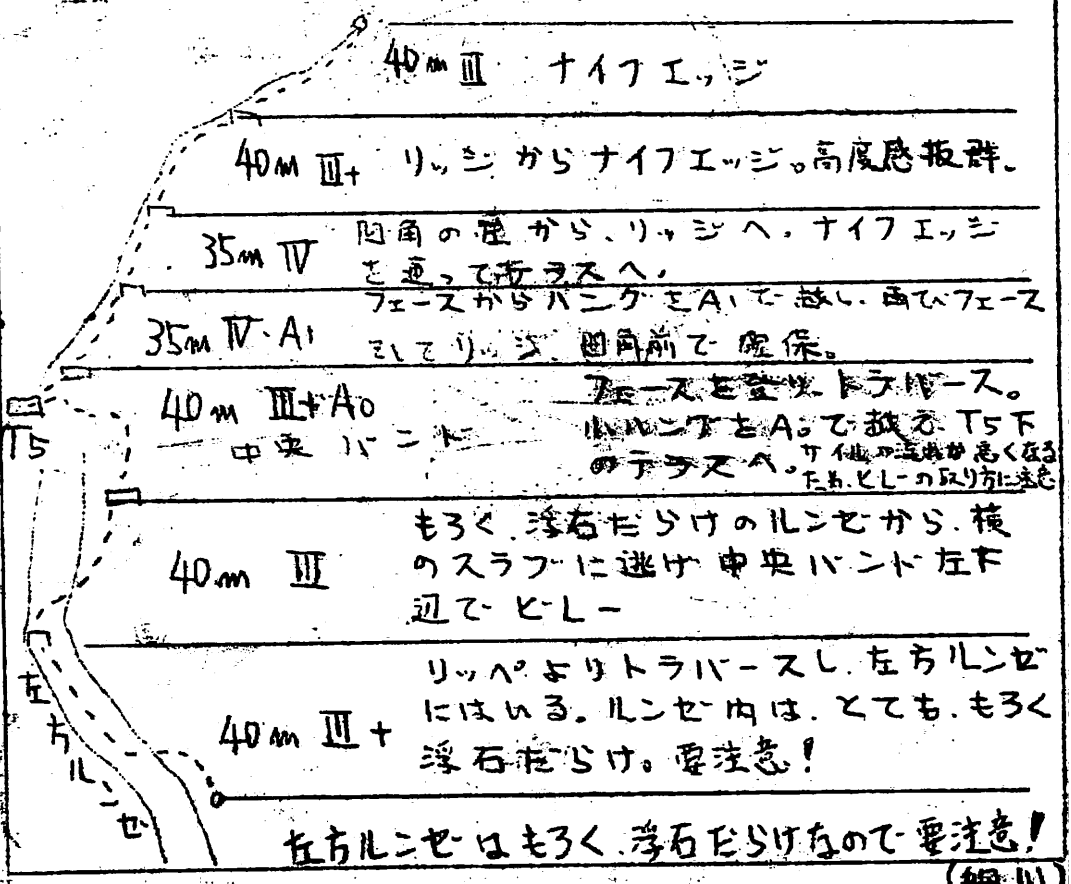 40m Ⅲ ナイフエッジ
40m Ⅲ+ リッジからナイフエッジ。高度感抜群。
35m Ⅳ 凹角の壁から、リッジへ。ナイフエッジ
を通ってテラスへ。
35m Ⅳ・A1 フェースからハングをA1で越し、再びフェース
そしてリッジ、凹角前で確保。
40m Ⅲ+A0 フェースを登り、トラバース。
中央バンド 小ハングをA0で越え、T5下
のテラスへ。ザイルの流れが悪くなる
ため、ビレーの取り方に注意
T5
40m Ⅲ もろく、浮石だらけのルンゼから、横
のスラブに逃げ中央バンド左下
辺でビレー
40m Ⅲ+ リッペよりトラバースし、左方ルンゼ
にはいる。ルンゼ内は、とても、もろく
浮石だらけ。要注意!
左方ルンゼ
左方ルンゼはもろく、浮石だらけなので要注意!